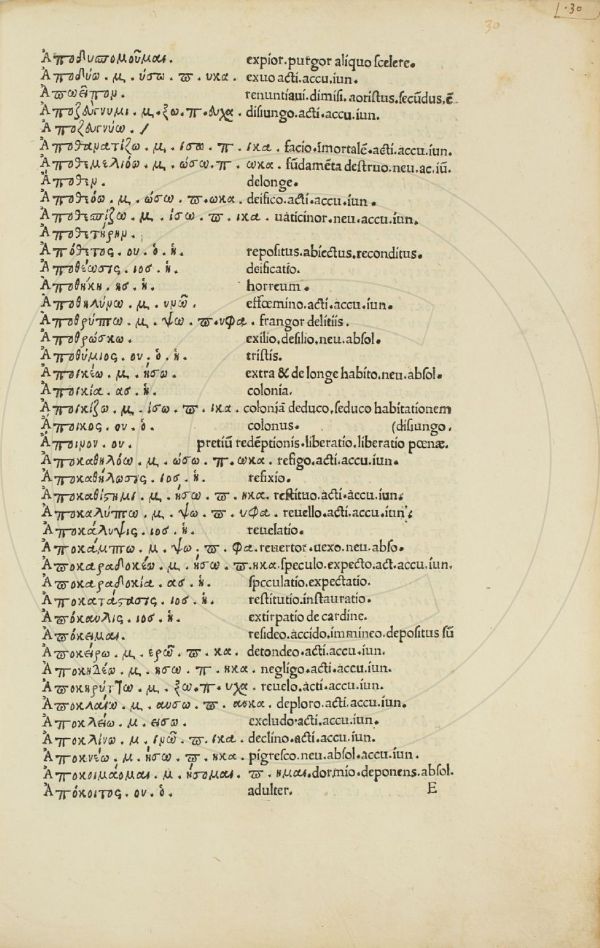 30
1.30
Ἀποδυσπομοῦμαι. expior.purgor aliquo scelere.
Ἀποδύω.μ.ύσω.π.υκα. exuo acti.accu.iun.
Ἀπωεῖπον. renuntiaui.dimisi.aoristus.secūdus.ē
Ἀποζδύγνυμι.μ.ξω.π.δυχα. disiungo.acti.accu.iun.
Ἀποζδυγνύω. /
Ἀποθανατίζω.μ.ισω.π.ικα. facio.imortalē.acti.accu.iun.
Ἀποθεμελιόω.μ.ώσω.π.ωκα. fūdamēta destruo.neu.ac.iū.
Ἀποθεν. delonge.
Ἀποθεόω.μ.ώσω.π.ωκα. deifico.acti.accu.iun.
Ἀποθεσπίζω.μ.ίσω.π.ικα. uaticinor.neu.accu.iun.
Ἀποθετήρην.
Ἀπόθετος.ου.ὁ.ἡ. repositus.abiectus.reconditus.
Ἀποθέωσις.ιοσ.ἡ. deificatio.
Ἀποθήκη.ησ.ἡ. horreum.
Ἀποθηλύνω.μ.υνῶ. effœmino.acti.accu.iun.
Ἀποθρύπτω.μ.ψω.π.υφα. frangor delitiis.
Ἀποθρώσκω. exilio.desilio.neu.absol.
Ἀποθύμιος.ου.ὁ.ἡ. tristis.
Ἀποικέω.μ.ήσω. extra & de longe habito.neu.absol.
Ἀποικία.ασ.ἡ. colonia.
Ἀποικίζω.μ.ίσω.π.ικα. coloniā deduco.seduco habitationem
Ἄποικος.ου.ὁ. colonus. (disiungo.
Ἄποινον.ου. pretiū redēptionis.liberatio.liberatio pœnæ.
Ἀποκαθηλόω.μ.ώσω.π.ωκα. refigo.acti.accu.iun.
Ἀποκαθήλωσις.ιοσ.ἡ. refixio.
Ἀποκαθίστημι.μ.ήσω.π.ηκα. restituo.acti.accu.iun.
Ἀποκαλύπτω.μ.ψω.π.υφα. reuello.acti.accu.iun.
Ἀποκάλυψις.ιοσ.ἡ. reuelatio.
Ἀποκάμπτω.μ.ψω.π.φα. reuertor.uexo.neu.abso.
Ἀποκαραδοκέω.μ.ήσω.π.ηκα. speculo.expecto.act.accu.iun.
Ἀποκαραδοκία.ασ.ἡ. speculatio.expectatio.
Ἀποκατάστασις.ιοσ.ἡ. restitutio.instauratio.
Ἀπόκαυλις.ιοσ.ἡ. extirpatio de cardine.
Ἀπόκειμαι. resideo.accido.immineo.depositus sū
Ἀποκείρω.μ.ερῶ.π.κα. detondeo.acti.accu.iun.
Ἀποκηδέω.μ.ησω.π.ηκα. negligo.acti.accu.iun.
Ἀποκηρύττω.μ.ξω.π.υχα. reuelo.acti.accu.iun.
Ἀποκλαίω.μ.αυσω.π.αυκα. deploro.acti.accu.iun.
Ἀποκλείω.μ.εισω. excludo.acti.accu.iun.
Ἀποκλίνω.μ.ινῶ.π.ικα. declino.acti.accu.iun.
Ἀποκνέω.μ.ήσω.π.ηκα. pigresco.neu.absol.accu.iun.
Ἀποκοιμάομαι.μ.ήσομαι. π.ημαι.dormio.deponens.absol.
Ἀπόκοιτος.ου.ὁ. adulter. E